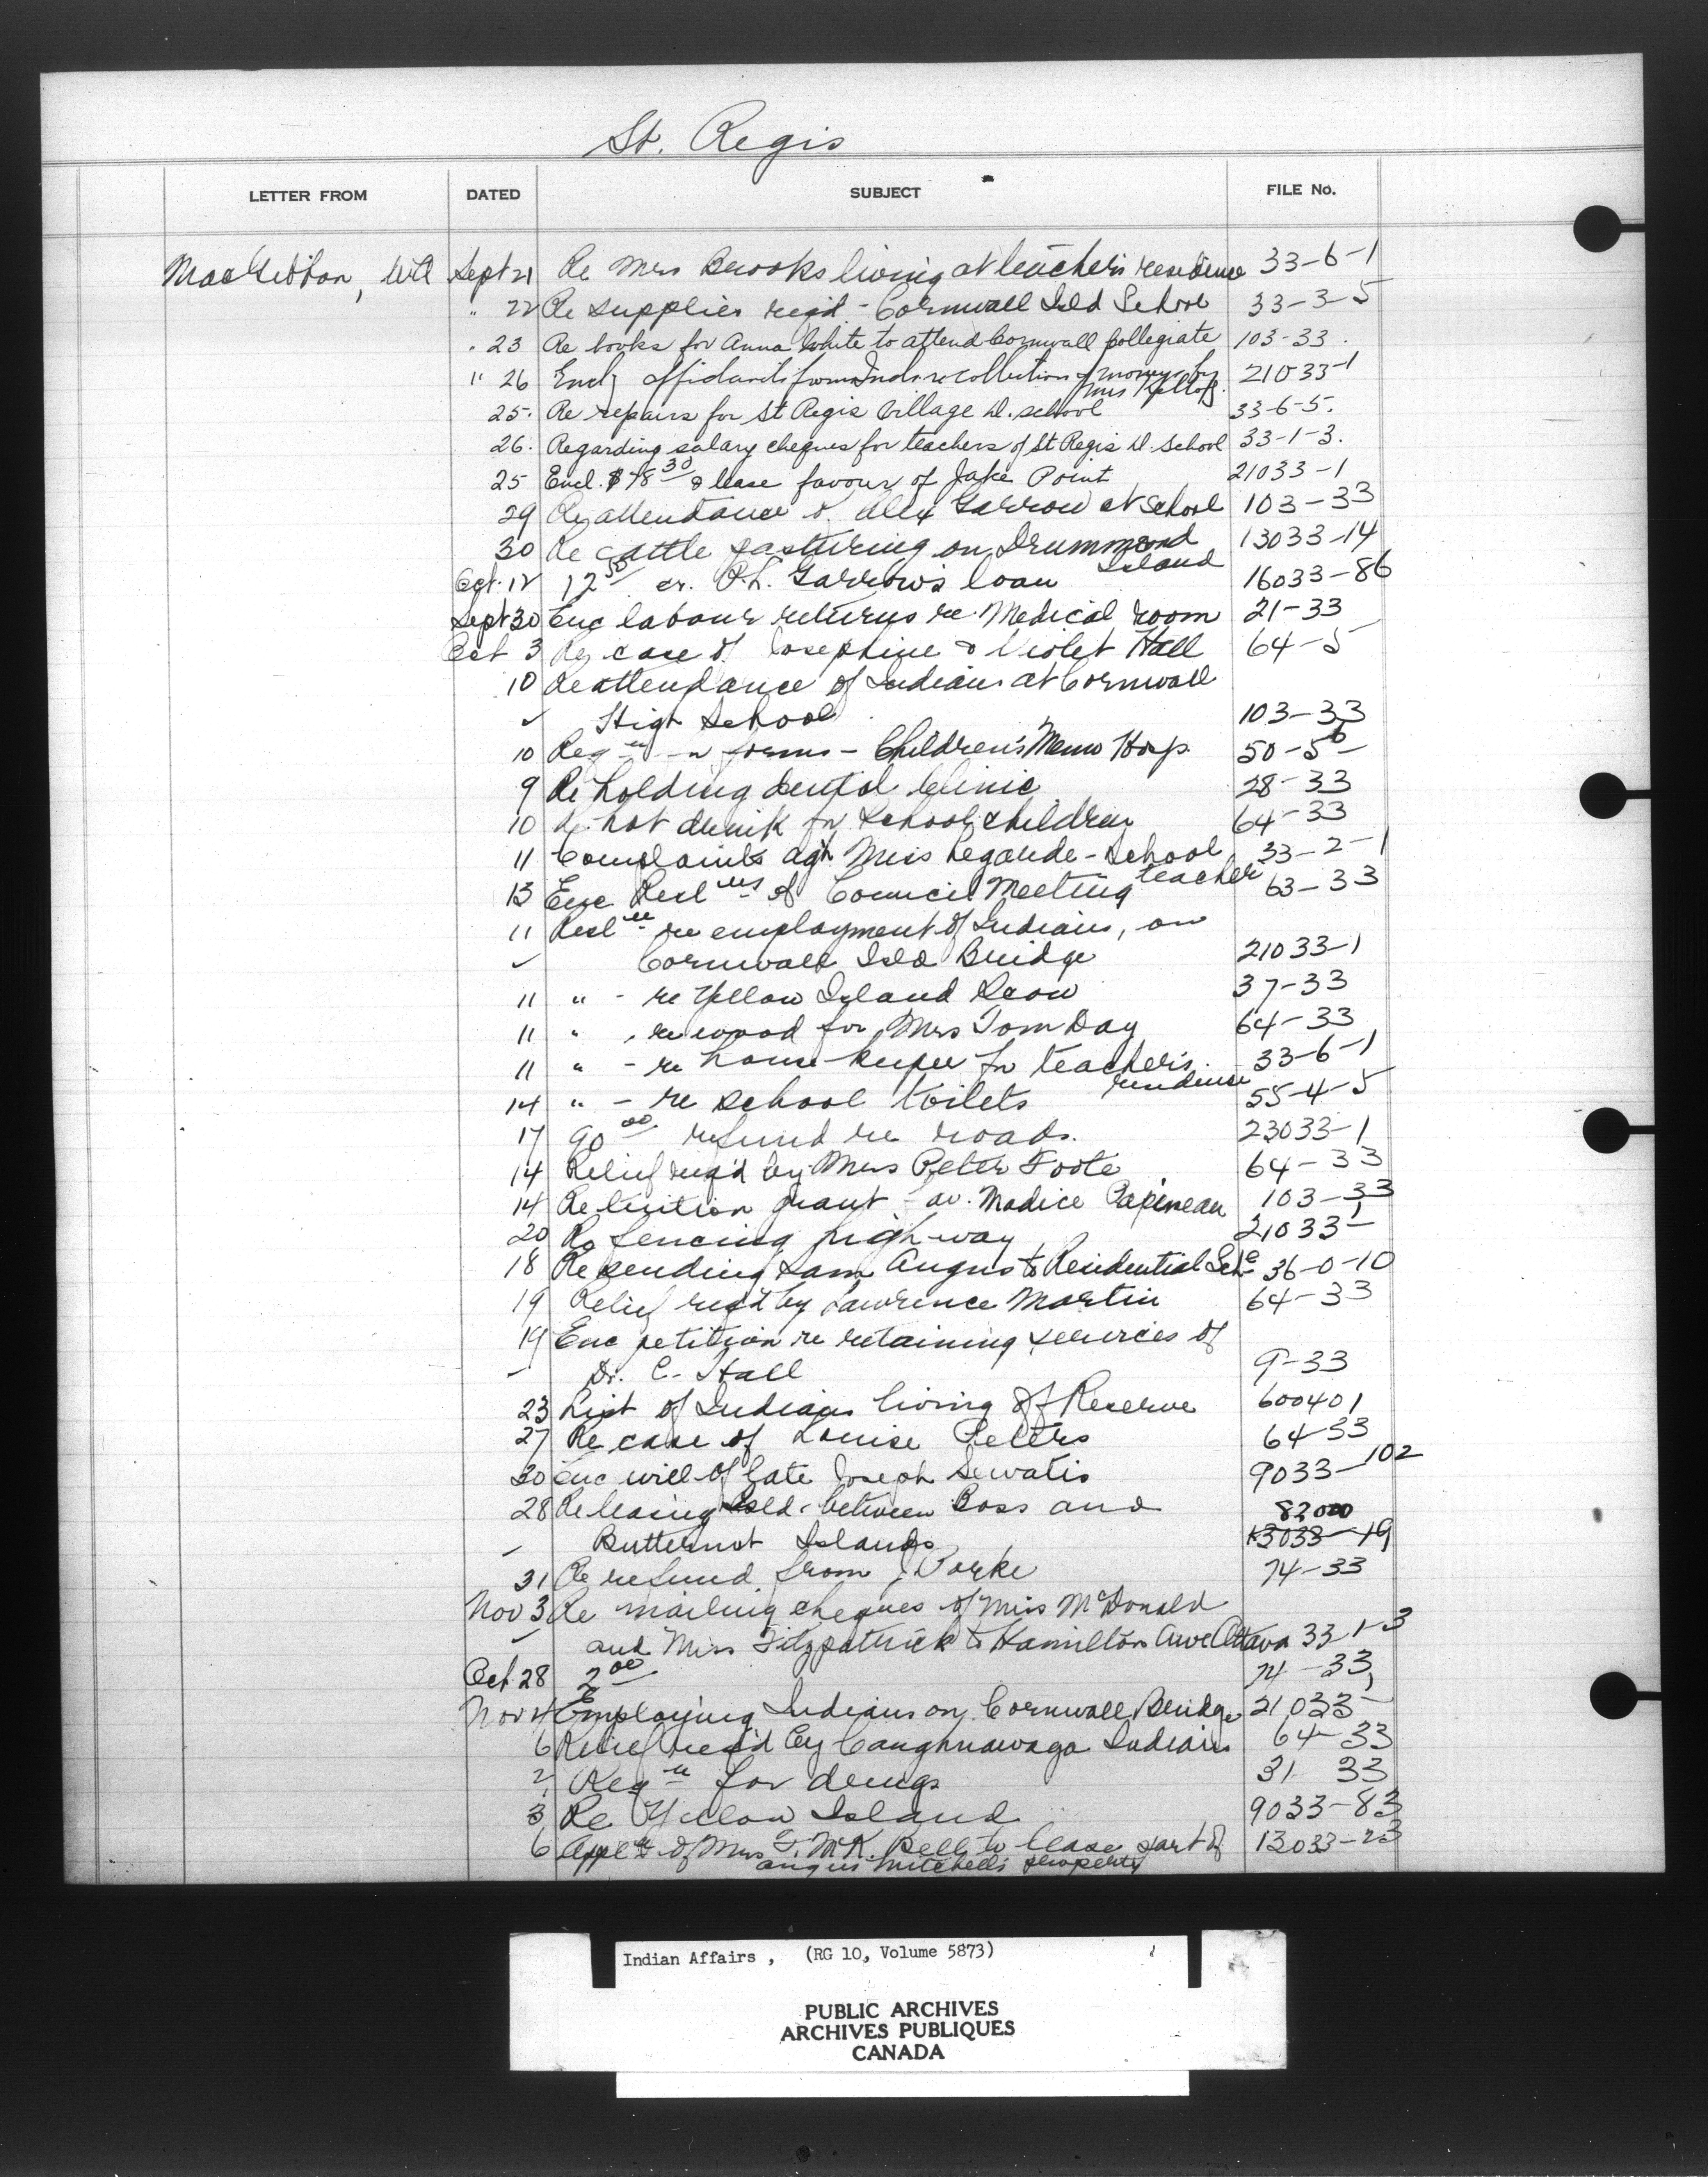 St. Regis
LETTER FROM DATED SUBJECT FILE No.
MacGibbon, Sept 21 Re Mrs Brooks living at teacher's residence 33-6-1
" 22 Re supplies reqd - Cornwall Isld School 33-3-5
" 23 Re books for Anna White to attend Cornwall Collegiate 103-33
" 26 Encl'g affidavits from Inds re collection of moneys by 21033-1
Mrs Kellogg.
25. Re repairs for St Regis Village D. school 33-6-5.
26. Regarding salary cheques for teachers of St Regis D. School 33-1-3.
25 Encl. $78 30 & lease favour of Jake Point 21033-1
29 Re attendance of Alex Garrow at School 103-33
30 Re cattle pasturing on Drummond 13033-14
Island
Oct. 12 12 50 cr. P.L. Garrow's loan 16033-86
Sept 30 Enc labour returns re Medical room 21-33
Oct 3 Re case of Josephine & Violet Hall 64-5
10 Re attendance of Indians at Cornwall
High School 103-33
10 Reqn forms - Children's Memo Hosp. 50-5
9 Re holding dental Clinic 28-33
10 Re hot drink for School children 64-33
11 Complaints agn Miss Legarde - School 33-2-1
teacher
13 Enc Reslns of Council Meeting 63-33
11 Resln re employment of Indians, on
Cornwall Isld Bridge 21033-1
11 " - re Yellow Island Scow 37-33
11 " - re wood for Mrs Tom Day 64-33
11 " - re house-keeper for teacher's 33-6-1
residence
14 " - re school toilets 55-4-5
17 90 00 refund re roads. 23033-1
14 Relief req'd by Mrs Peter Foote 64-33
14 Re tuition grant - av. Madice Papineau 103-33
20 Re fencing highway 21033-1
18 Re sending Sam Angus to Residential Schl 36-0-10
19 Relief reqd by Lawrence Martin 64-33
19 Enc petition re retaining services of
Dr. C. Hall 9-33
23 List of Indians living off Reserve 600401
27 Re case of Louise Peters 64-33
30 Enc will of late Joseph Sewatis 9033-102
28 Re leasing Isld. between Boss and 82000
Butternut Islands 13033-19
31 Re refund from J Porke 74-33
Nov 3 Re mailing cheques of Miss McDonald
and Miss Fitzpatrick to Hamilton Ave Ottawa 33-1-3
Oct 28 2 00 74-33
Nov 4 Employing Indians on Cornwall Bridge 21033-1
6 Relief req'd by Caughnawaga Indians 64-33
2 Reqn for drugs 31-33
3 Re Yellow Island 9033-83
6 Appln of Mrs G. McK. Bell to lease part of 13033-23
Angus Mitchell's property
Indian Affairs, (RG 10, Volume 5873)
PUBLIC ARCHIVES
ARCHIVES PUBLIQUES
CANADA